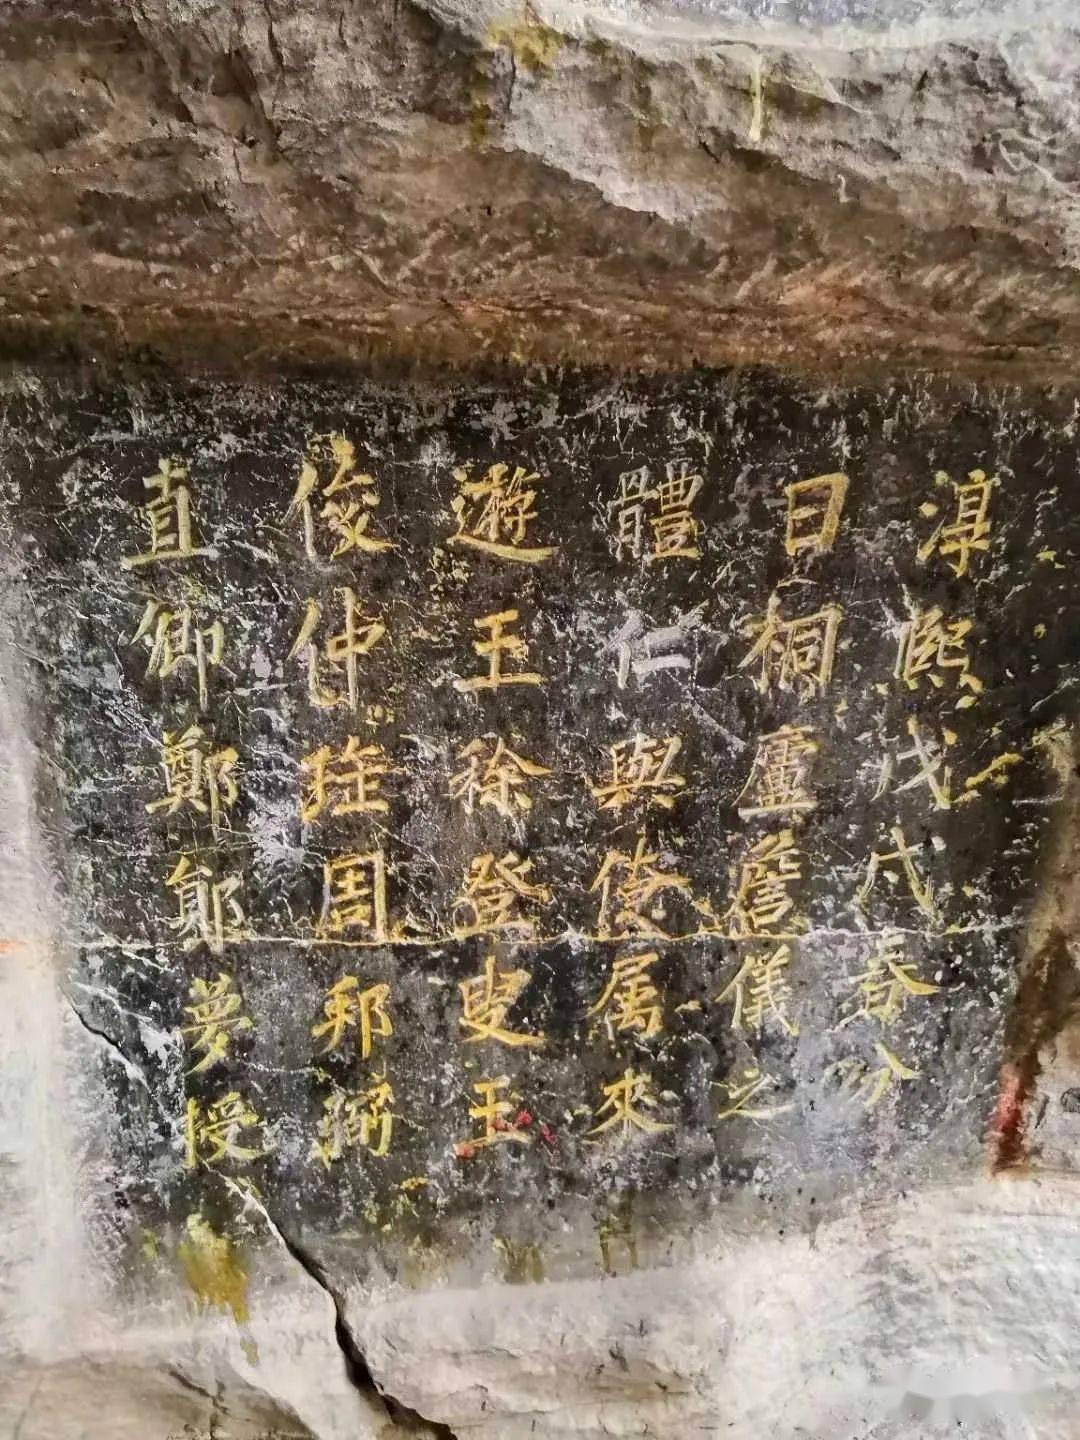 淳熙戊戌春分
日桐廬詹儀之
體仁與僚属來
遊王徐登叟王
俊仲挂周邦弼
直卿鄭鄖夢授